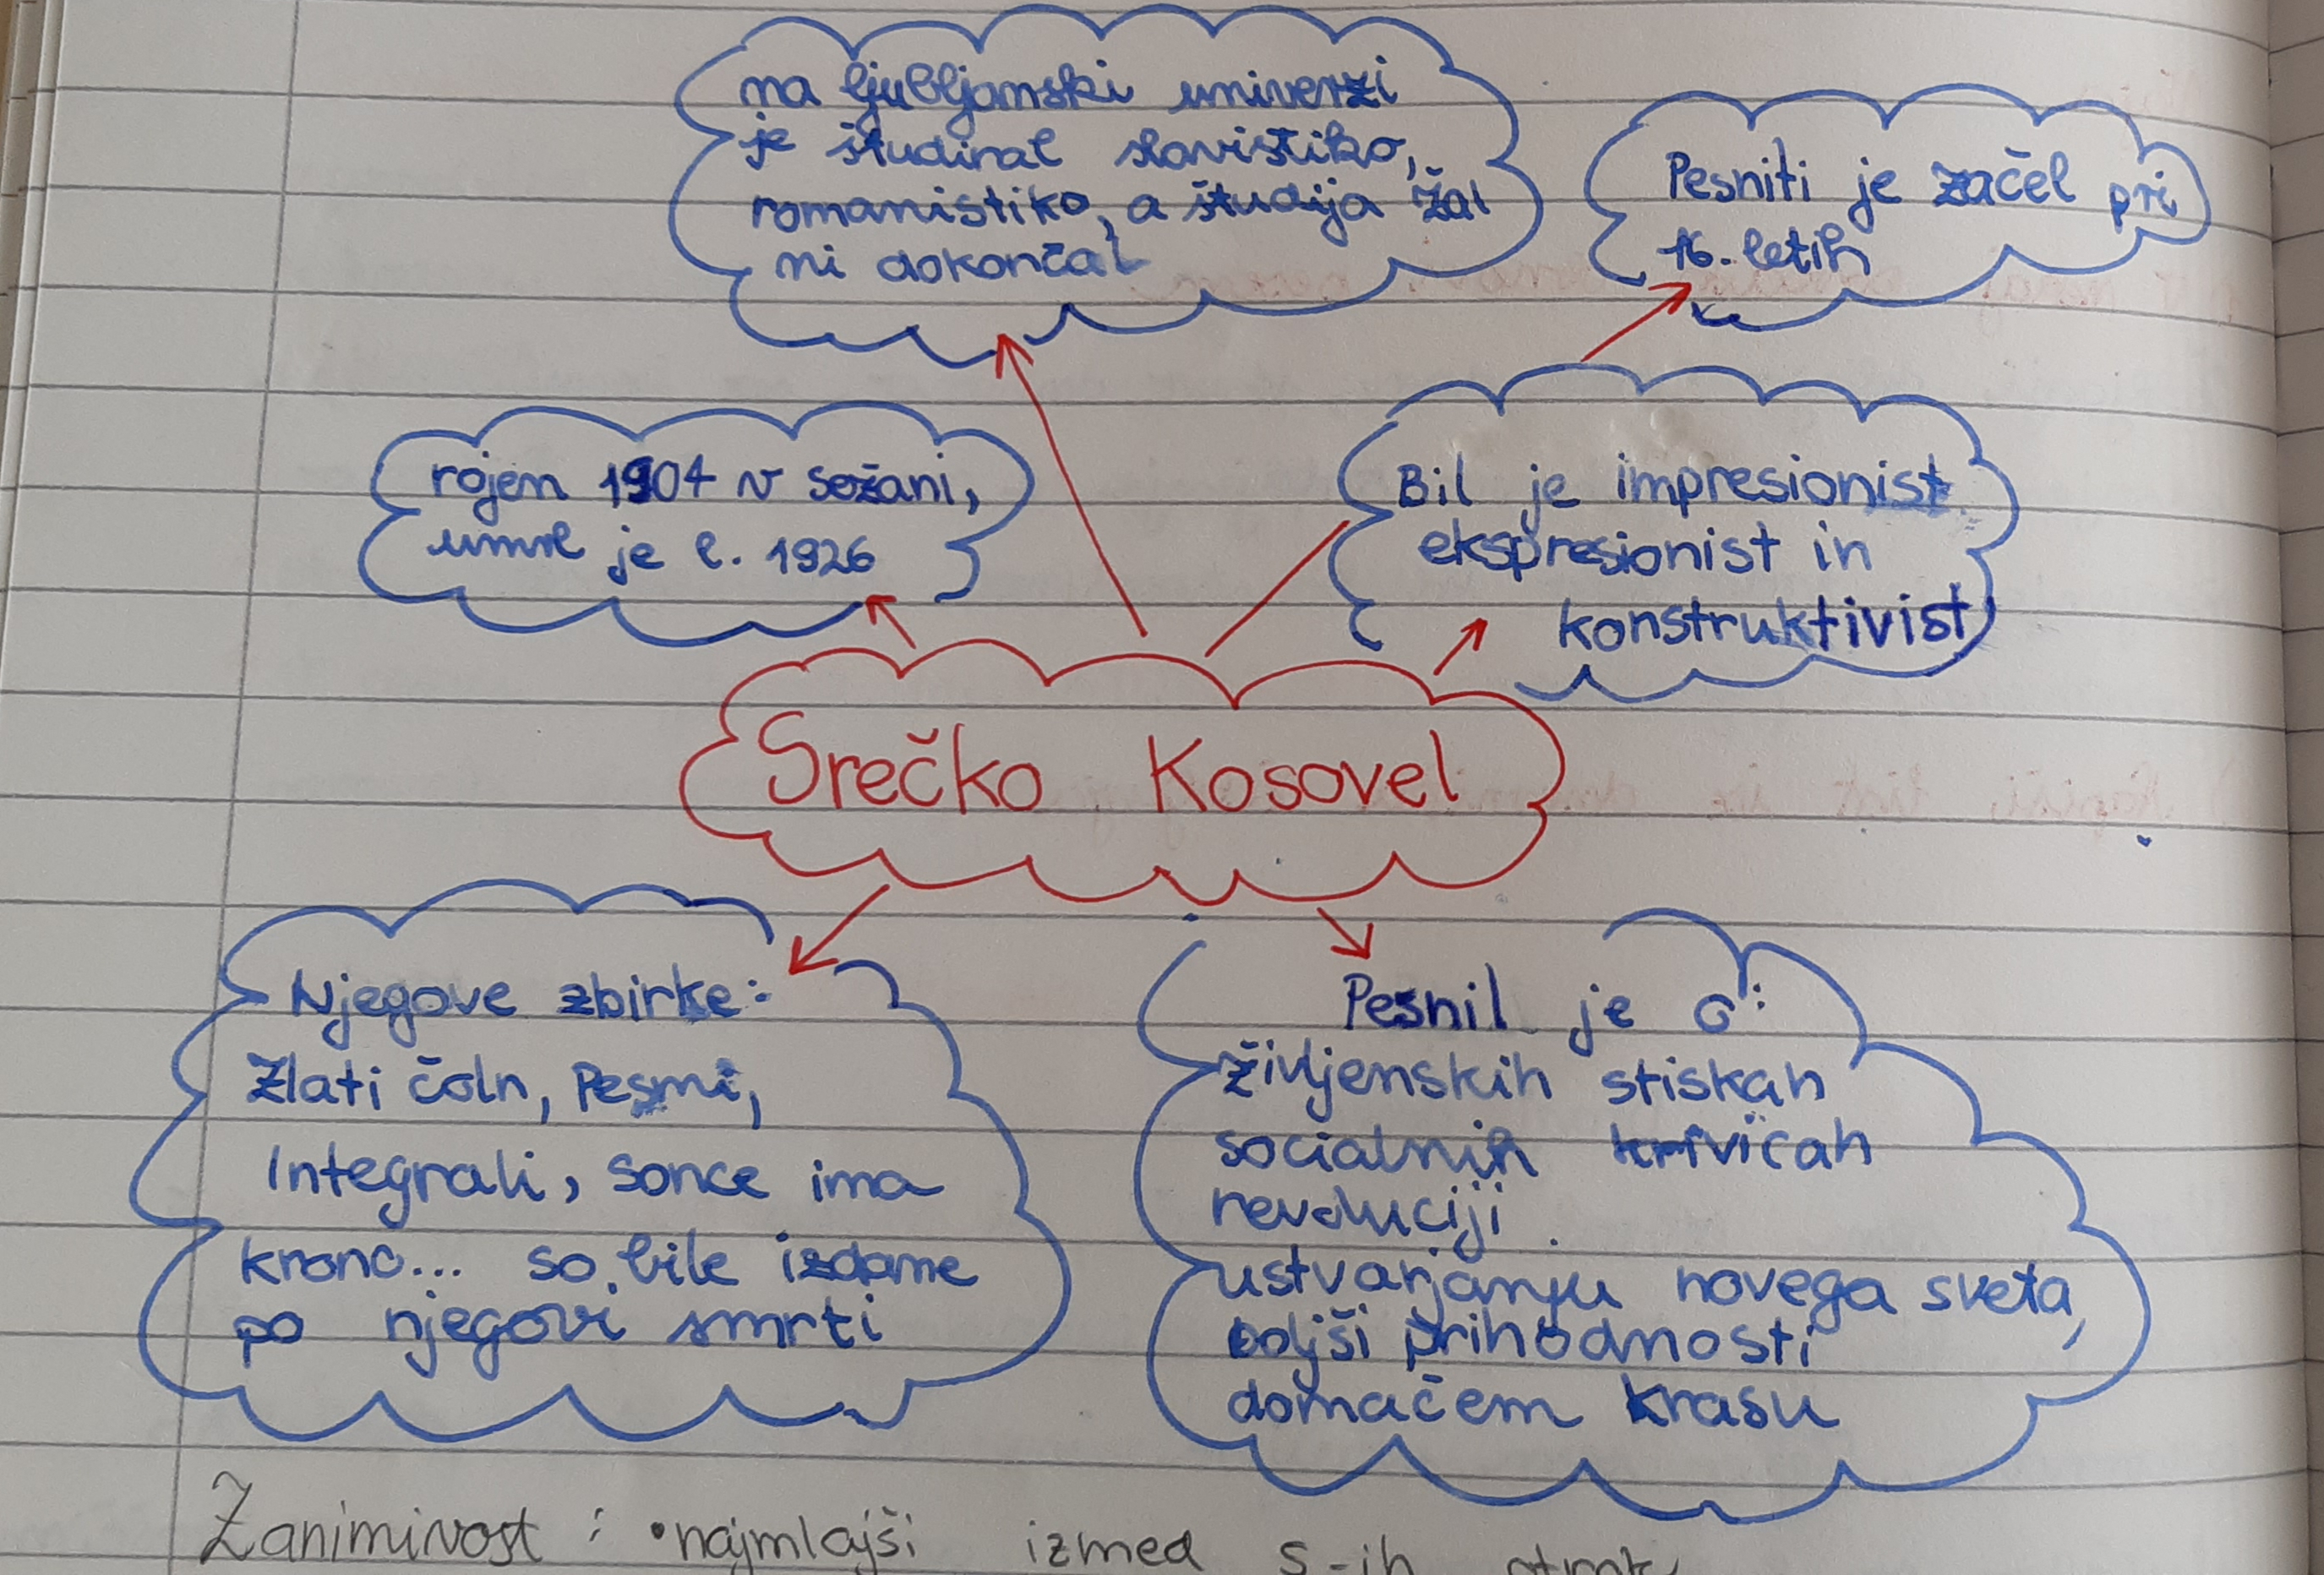 na ljubljanski univerzi
je študiral slavistiko,
romanistiko, a študija žal
ni dokončal
Pesniti je začel pri
16. letih
rojen 1904 v sežani,
umrl je l. 1926
Bil je impresionist
ekspresionist in
konstruktivist
Srečko Kosovel
Njegove zbirke:
Zlati čoln, Pesmi,
Integrali, sonce ima
krono... so bile izdane
po njegovi smrti
Pesnil je o:
življenskih stiskah
socialnih krivicah
revoluciji
ustvarjanju novega sveta,
boljši prihodnosti
domačem krasu
Zanimivost: •najmlajši izmed 5-ih otrok